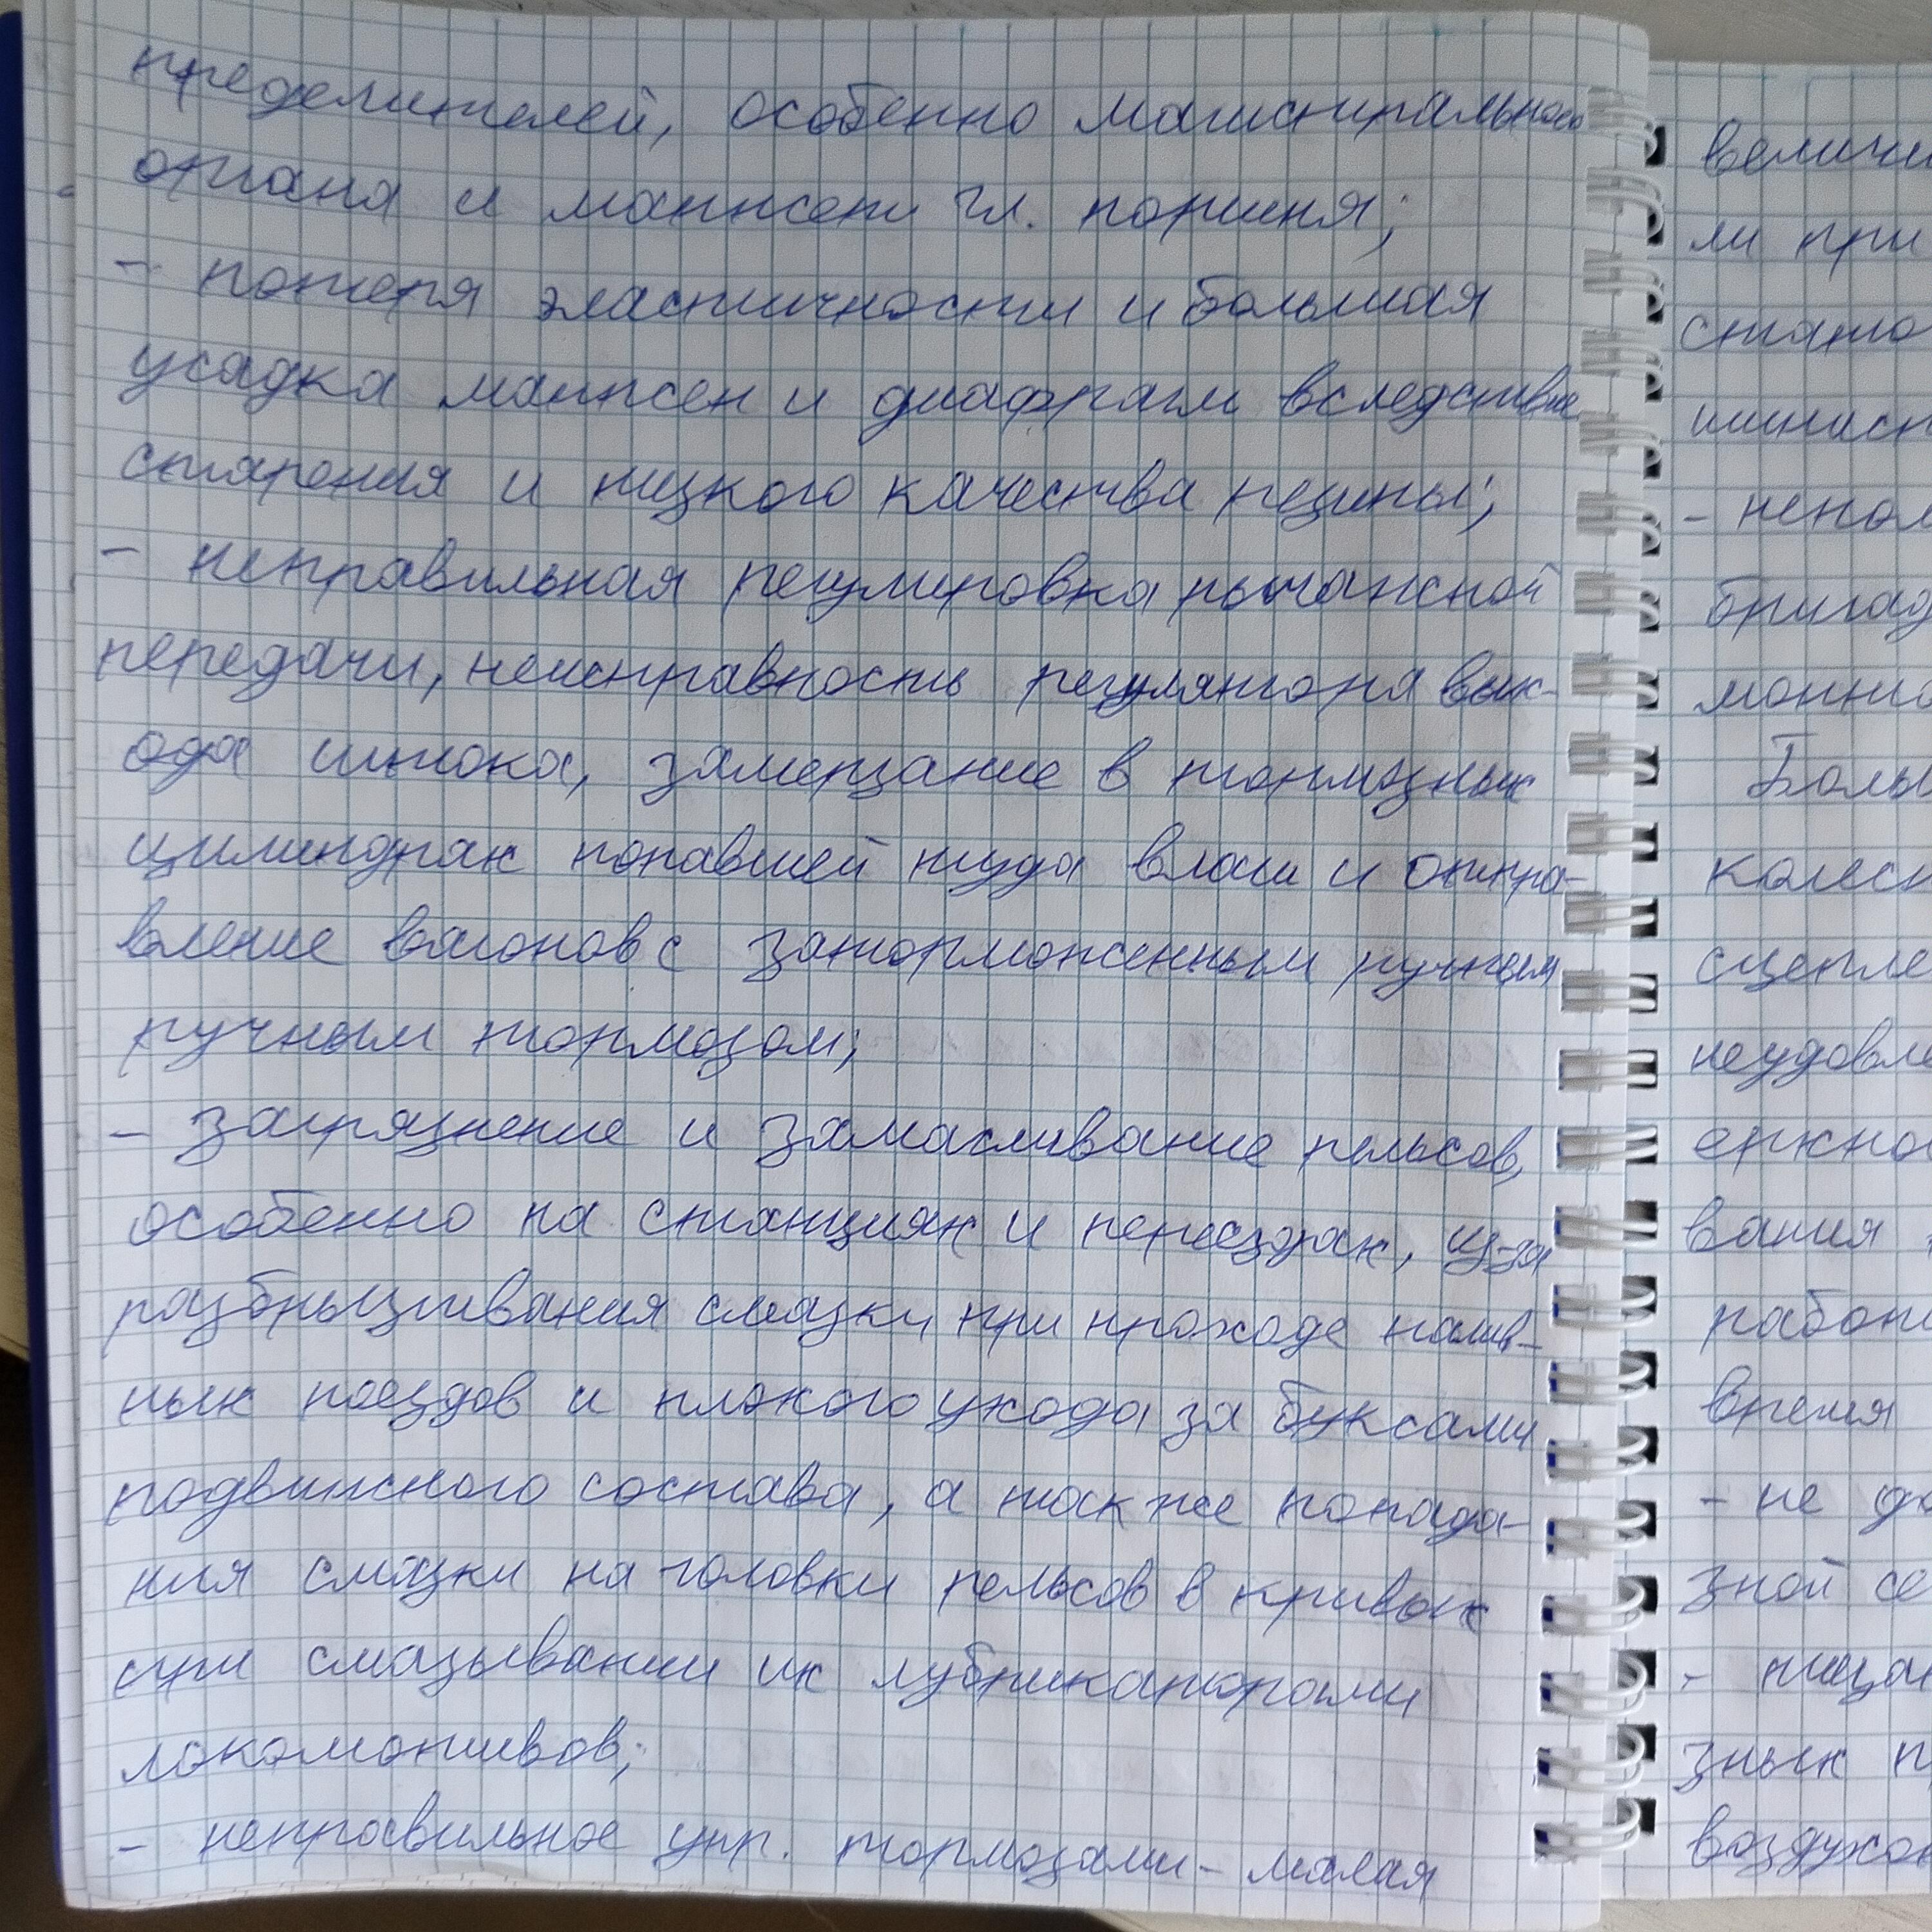 пределителей, особенно магистрального
органа и манжеты гл. поршня;
- потеря эластичности и большая
усадка манжен и диафрагм вследствие
старения и низкого качества резины;
- неправильная регулировка рычажной
передачи, неисправность регулятора вых-
ода штока, замерзание в тормозных
цилиндрах попавшей туда влаги и отпра-
вление вагонов с заторможенным ручным
ручным тормозом;
- загрязнение и замасливание рельсов,
особенно на станциях и переездах, из-за
разбрызгивания смазки при проходе налив-
ных поездов и плохого ухода за буксами
подвижного состава, а так же попада-
ния смазки на головки рельсов в кривых
при смазывании их лубрикаторами
локомотивов;
- неправильное упр. тормозами - малая
величи
ли при
стято
шинист
- непол
бригад
монто
Больш
колесн
сцепле
неудовле
ержно
вания
работ
время
- не до
зной се
зных п
воздухо